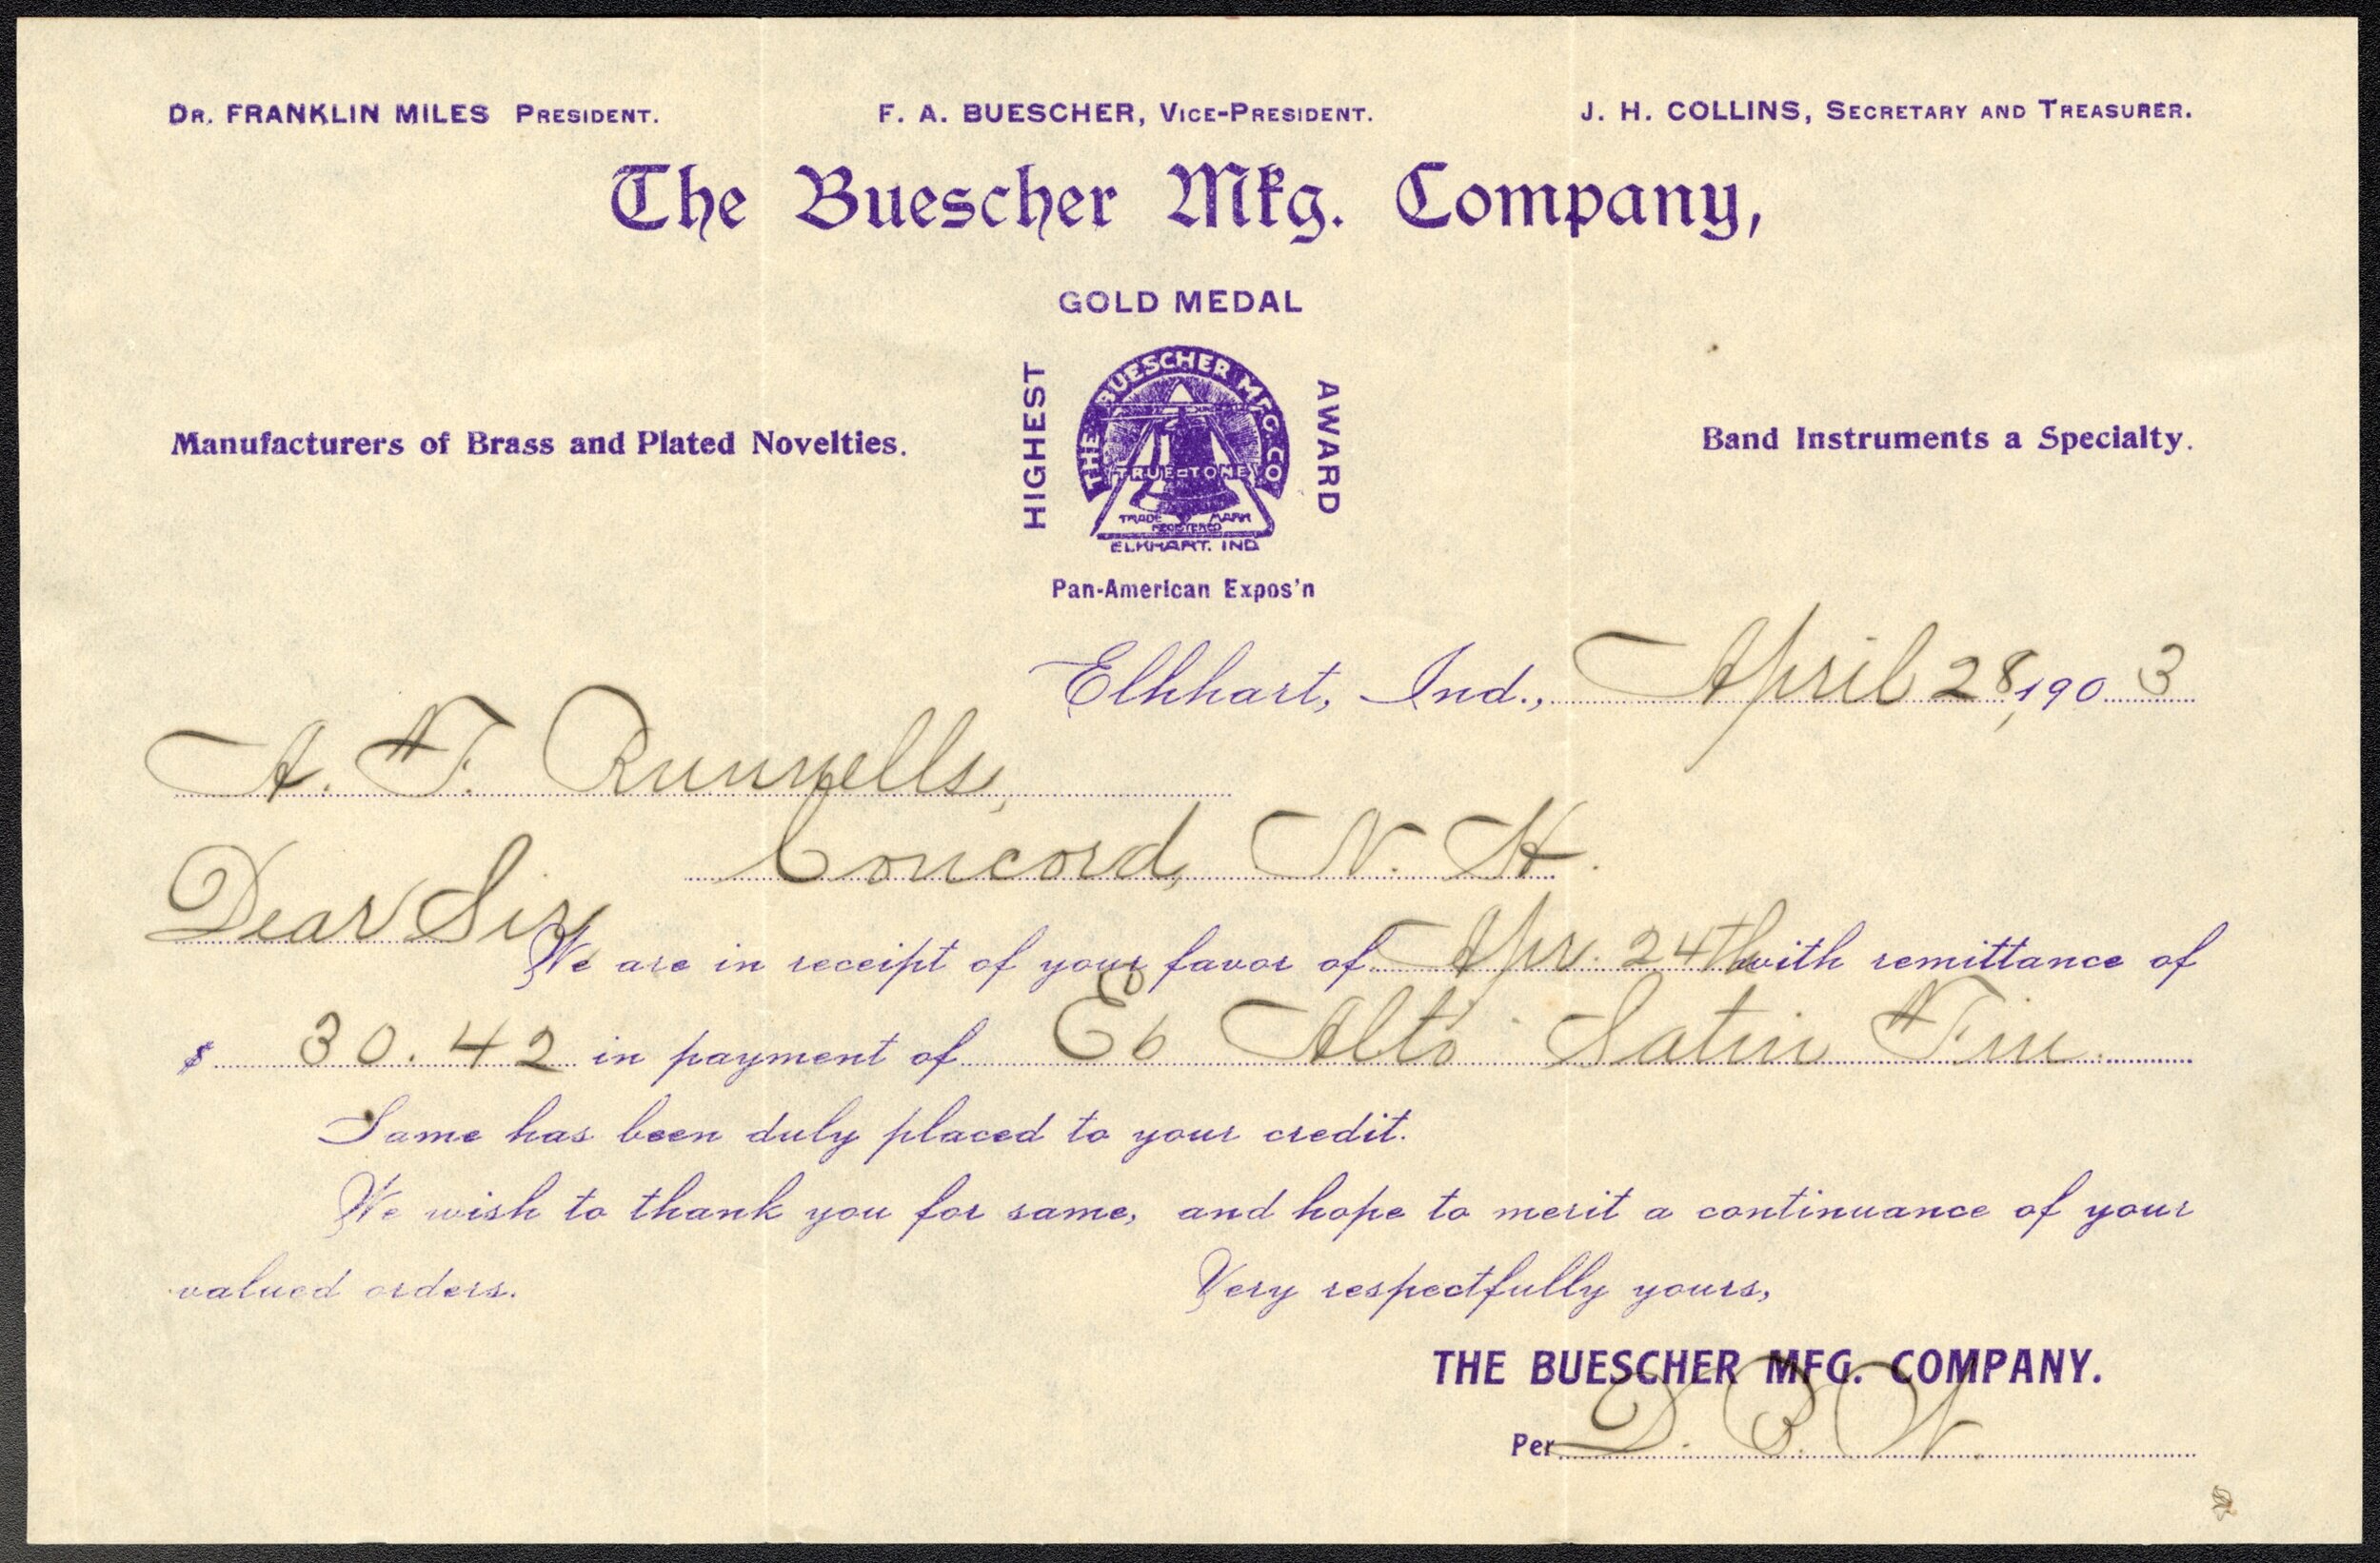 DR. FRANKLIN MILES PRESIDENT. F. A. BUESCHER, VICE-PRESIDENT. J. H. COLLINS, SECRETARY AND TREASURER.
The Buescher Mfg. Company,
GOLD MEDAL
HIGHEST
AWARD
THE BUESCHER MFG. CO
TRUE-TONE
TRADE MARK
REGISTERED
ELKHART. IND
Manufacturers of Brass and Plated Novelties. Band Instruments a Specialty.
Pan-American Expos'n
Elkhart, Ind., April 28, 1903
A. F. Runnells,
Concord, N. H.
Dear Sir
We are in receipt of your favor of Apr. 24th with remittance of
$ 30.42 in payment of Eb Alto Satin Fin.
Same has been duly placed to your credit.
We wish to thank you for same, and hope to merit a continuance of your
valued orders. Very respectfully yours,
THE BUESCHER MFG. COMPANY.
Per